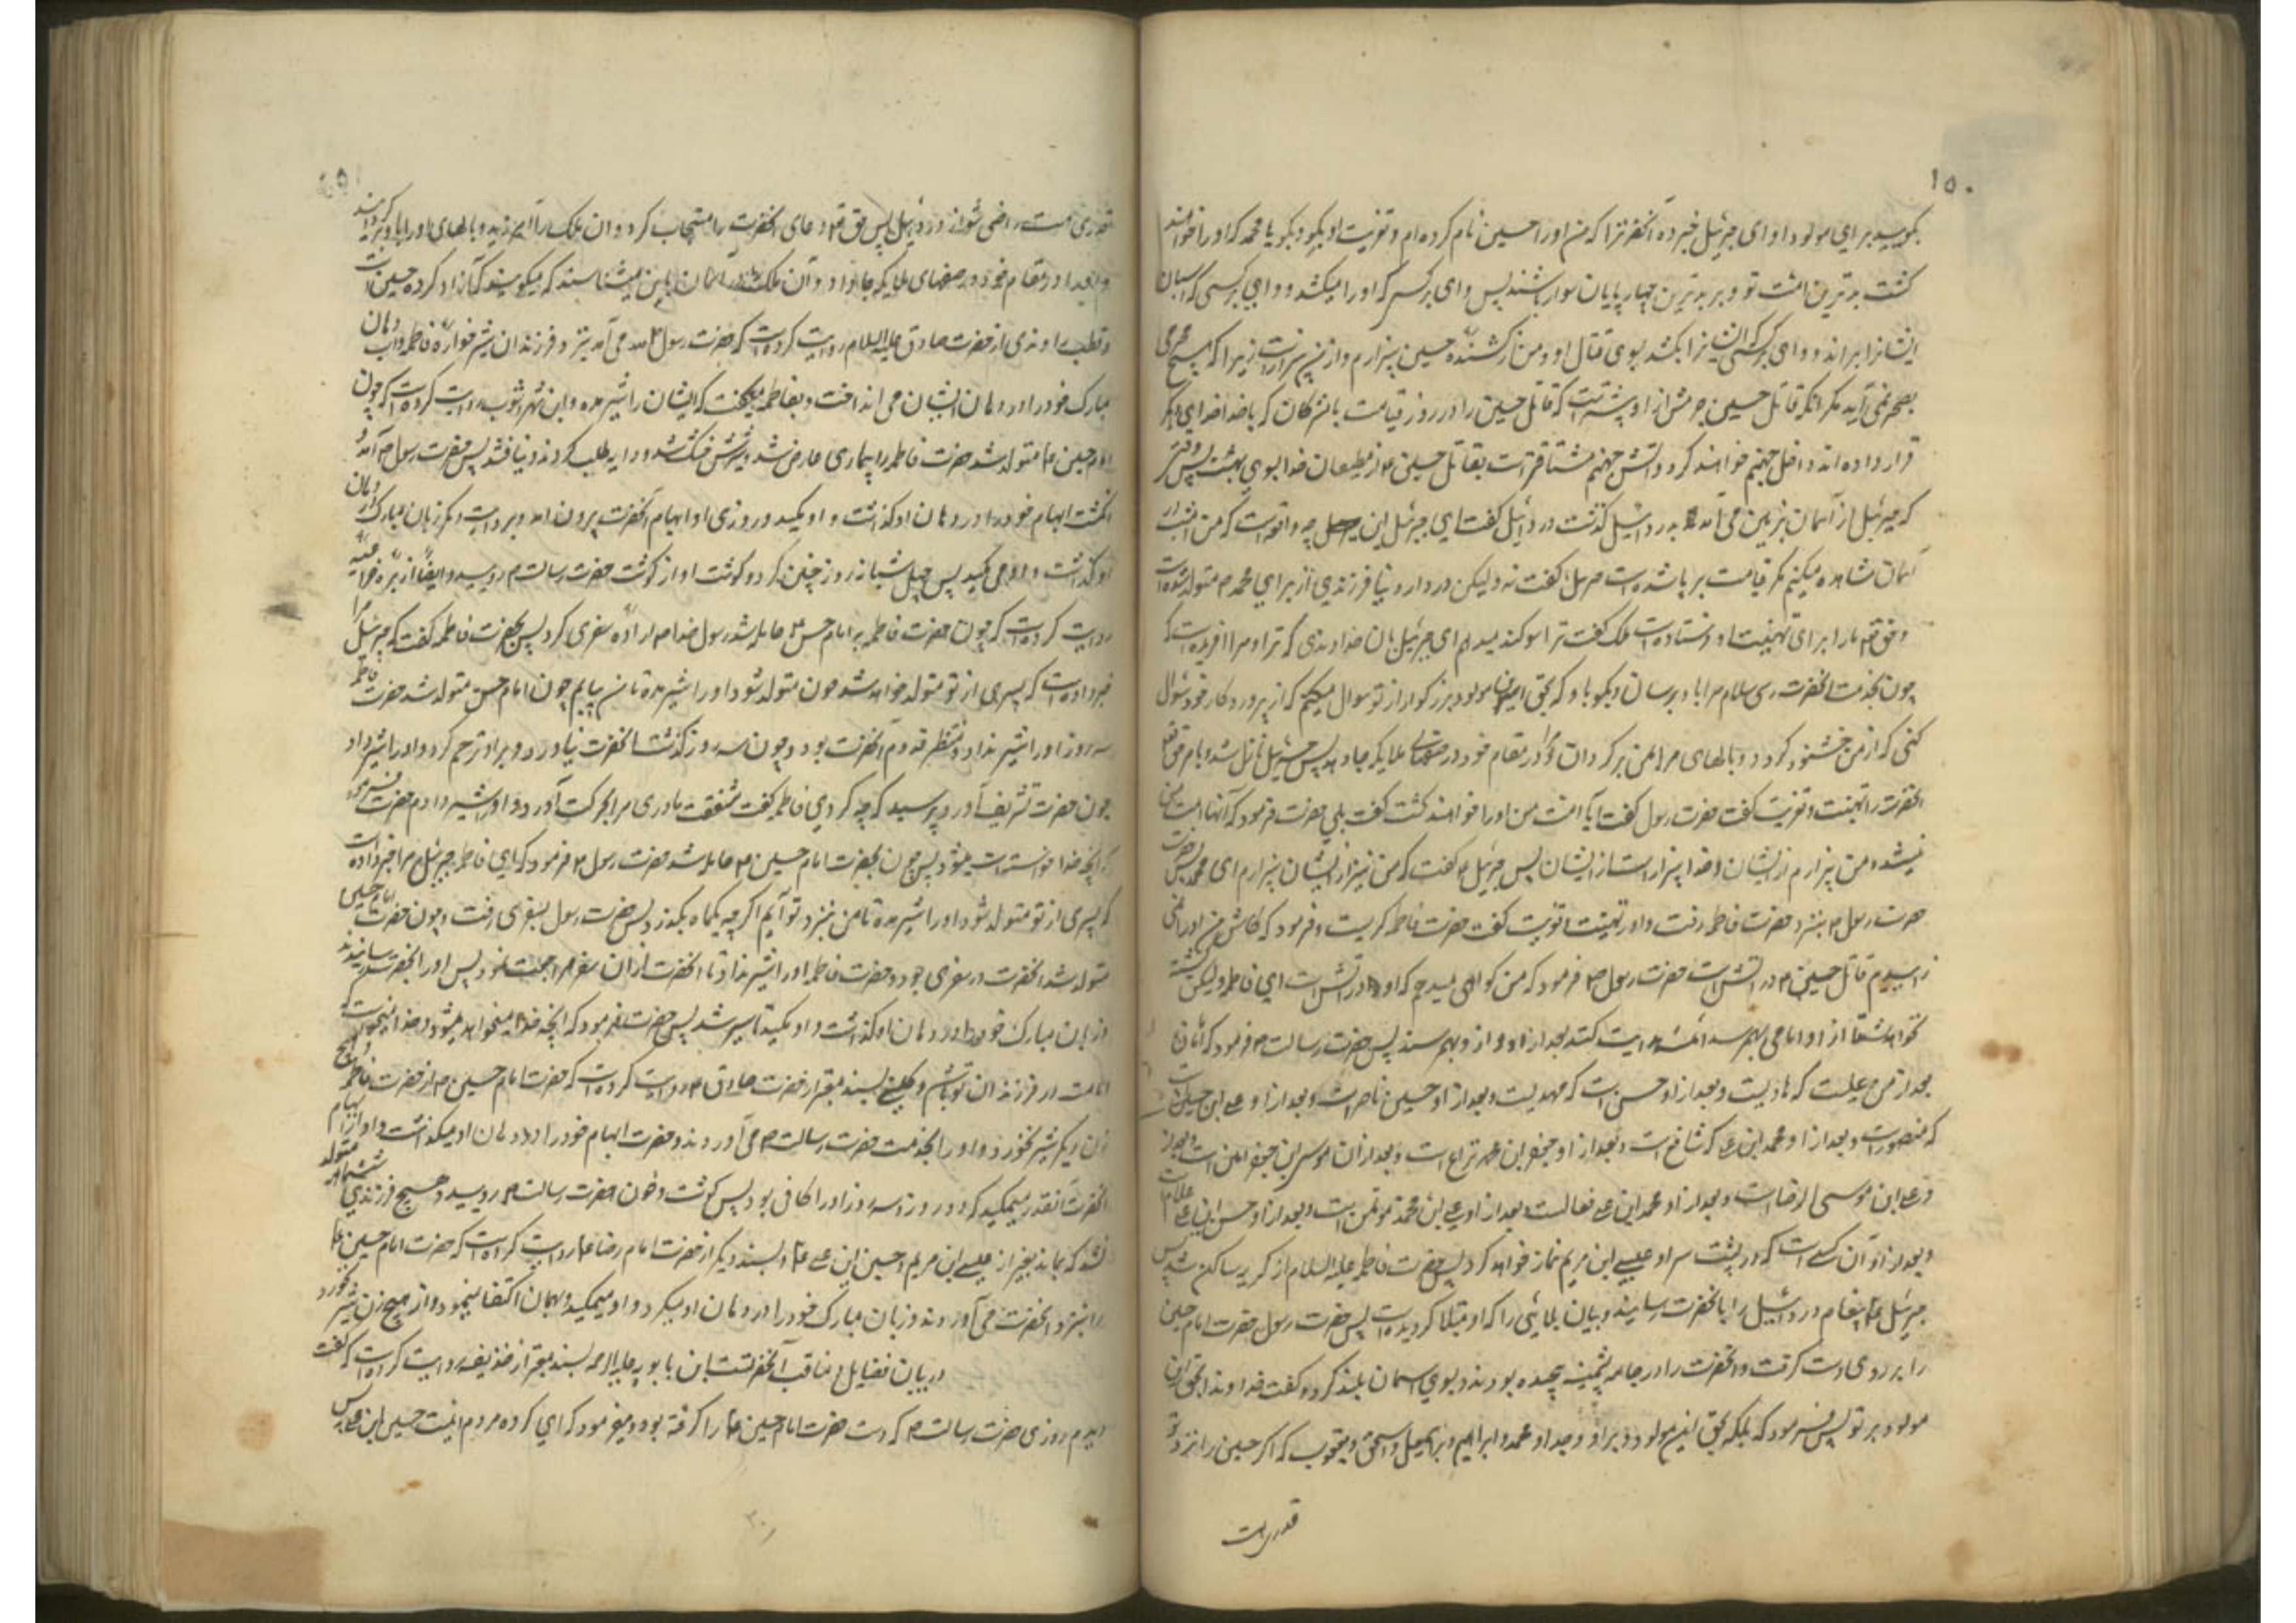 ۱۵۰
بگویید برای مولود او ای جبرئیل خبر ده آنحضرت را که من او را حسین نام کرده‌ام و تعزیت او بگو و بگو یا محمد که او را خواهند
کشت بدترین امت تو و بر بدترین چهارپایان سوار باشند پس وای بر کسی که او را میکشد و وای بر کسی که اسبان
ایشانرا براند و وای بر کسی که ایشانرا بکشد بسوی قتال او و من از کشنده حسین بیزارم و او از من بیزار است زیرا که هیچ مجرمی
بصحرا نمی‌آید مگر آنکه قاتل حسین جرمش از او بیشتر است که قاتل حسین را در روز قیامت با مشرکان که با خدا خدای دیگر
قرار داده‌اند داخل جهنم خواهند کرد و آتش جهنم مشتاقتر است بقاتل حسین از مطیعان خدا بسوی بهشت پس وقتی
که جبرئیل از آسمان بزمین می‌آمد بدردائیل گذشت دردائیل گفت ای جبرئیل این چه واقعه است که من امشب در
آسمان مشاهده میکنم مگر قیامت برپا شده است جبرئیل گفت نه ولیکن در دار دنیا فرزندی از برای محمد متولد شده است
و حق تعالی مرا برای تهنیت او فرستاده است ملک گفت ترا سوگند میدهم ای جبرئیل بآن خداوندی که ترا و مرا آفریده است که
چون بخدمت آنحضرت رسی سلام مرا باو برسان و بگو باو که بحق این مولود بزرگوار از تو سوال میکنم که از پروردگار خود سؤال
کنی که از من خشنود گردد و بالهای مرا بمن برگرداند و مرا در مقام خود در صفهای ملایکه جا دهد پس جبرئیل نازل شد و بامر حق تعالی
آنحضرت را تهنیت و تعزیت گفت حضرت رسول گفت آیا امت من او را خواهند کشت گفت بلی حضرت فرمود که آنها امت من
نیستند و من بیزارم از ایشان و خدا بیزار است از ایشان پس جبرئیل گفت که من نیز از ایشان بیزارم ای محمد پس حضرت
حضرت رسول بنزد حضرت فاطمه رفت و او را تهنیت و تعزیت گفت حضرت فاطمه گریست و فرمود که کاش من او را نمی
زاییدم قاتل حسین در آتش است حضرت رسول فرمود که من گواهی میدهم که او در آتش است ای فاطمه ولیکن کشته
نخواهد شد تا از او امامی بهم رسد که ائمه هدایت کنند بعد از او از او بهم رسند پس حضرت رسالت فرمود که امامان
بعد از من علیست که هادیست و بعد از او حسن است که مهدیست و بعد از او حسین ناصر است و بعد از او علی ابن حسین است
که منصور است و بعد از او محمد ابن علی که شافع است و بعد از او جعفر ابن محمد نفاع است و بعد از آن موسی ابن جعفر امین است و بعد از
او علی ابن موسی الرضا است و بعد از او محمد ابن علی فعالست و بعد از او علی ابن محمد مؤتمن است و بعد از او حسن ابن علی علام است
و بعد از او آن کسی است که در پشت سر او عیسی ابن مریم نماز خواهد کرد پس حضرت فاطمه علیها السلام از گریه ساکن شد پس
جبرئیل پیغام دردائیل را بآنحضرت رسانید و بیان بلائی را که او مبتلا گردیده است پس حضرت رسول حضرت امام حسین
را بر روی دست گرفت و آنحضرت را در جامه پشمینه پیچیده بودند و بسوی آسمان بلند کرد و گفت خداوندا بحق این
مولود بر تو پس فرمود که بلکه بحق این مولود و بر او و جد او محمد و ابراهیم و اسمعیل و اسحق و یعقوب که اگر حسین را نزد تو
قدری هست
قدری هست راضی شو از دردائیل پس حق تعالی دعای آنحضرت را مستجاب کرد و آن ملک را آمرزید و بالهای او را باو برگردانید
و او را در مقام خود در صفهای ملایکه جا داد و آن ملک را در آسمان باین میشناسند که میگویند که آزاد کرده حسین است
و قطب راوندی از حضرت صادق علیه السلام روایت کرده است که حضرت رسول می‌آمد بنزد فرزندان شیرخواره فاطمه و آب دهان
مبارک خود را در دهان ایشان می‌انداخت و بفاطمه میگفت که ایشان را شیر مده و ابن شهرآشوب روایت کرده است که چون
امام حسین متولد شد حضرت فاطمه را بیماری عارض شد و شیرش خشک شد و دایه طلب کردند و نیافتند پس حضرت رسول آمد و
انگشت ابهام خود را در دهان او گذاشت و او مکید و روزی او ابهام آنحضرت بیرون آمد و بروایت دیگر زبان مبارک را در دهان
او گذاشت و او می‌مکید پس چهل شبانه روز چنین کرد و گوشت او از گوشت حضرت رسالت رویید و ایضا از بره خزاعیه
روایت کرده است که چون حضرت فاطمه بامام حسن حامله شد رسول خدا اراده سفری کرد پس بحضرت فاطمه گفت که جبرئیل مرا
خبر داده است که پسری از تو متولد خواهد شد چون متولد شود او را شیر مده تا من بیایم چون امام حسن متولد شد حضرت فاطمه
سه روز او را شیر نداد و منتظر قدوم آنحضرت بود و چون سه روز گذشت آنحضرت نیاورد و بر او ترحم کرد و او را شیر داد
چون حضرت تشریف آورد پرسید که چه کردی فاطمه گفت شفقت مادری مرا بحرکت آورد و او را شیر دادم حضرت فرمود
که آنچه خدا خواسته است میشود پس چون بحضرت امام حسین حامله شد حضرت رسول فرمود که ای فاطمه جبرئیل مرا خبر داده است
که پسری از تو متولد شود او را شیر مده تا من بنزد تو آیم اگر چه یکماه بگذرد پس حضرت رسول بسفری رفت و چون حضرت امام حسین
متولد شد آنحضرت در سفری بود و حضرت فاطمه او را شیر نداد تا آنحضرت از آن سفر مراجعت نمود پس او را بآنحضرت رسانیدند
و زبان مبارک خود را در دهان او گذاشت و او مکید تا سیر شد پس حضرت فرمود که آنچه خدا میخواهد میشود و خدا میخواست که
امامت در فرزندان تو باشد و کلینی بسند معتبر از حضرت صادق روایت کرده است که حضرت امام حسین از حضرت فاطمه و هیچ
زن دیگر شیر نخورد و او را بخدمت حضرت رسالت می‌آوردند و حضرت ابهام خود را در دهان او میگذاشت و او از ابهام
آنحضرت آنقدر میمکید که دو روز و سه روز او را کافی بود پس گوشت و خون حضرت رسالت رویید و هیچ فرزندی ششماهه متولد
نشد که بماند بغیر از عیسی ابن مریم و حسین ابن علی و بسند دیگر از حضرت امام رضا روایت کرده است که حضرت امام حسین
را بنزد آنحضرت می‌آوردند و زبان مبارک خود را در دهان او میکرد و او میمکید و بهمان اکتفا مینمود و از هیچ زن شیر نخورد
در بیان فضایل و مناقب آنحضرتست ابن بابویه علیه الرحمه بسند معتبر از حذیفه روایت کرده است که گفت
دیدم روزی حضرت رسالت که دست حضرت امام حسین را گرفته بود و میفرمود که ای گروه مردم اینست حسین ابن علی پس